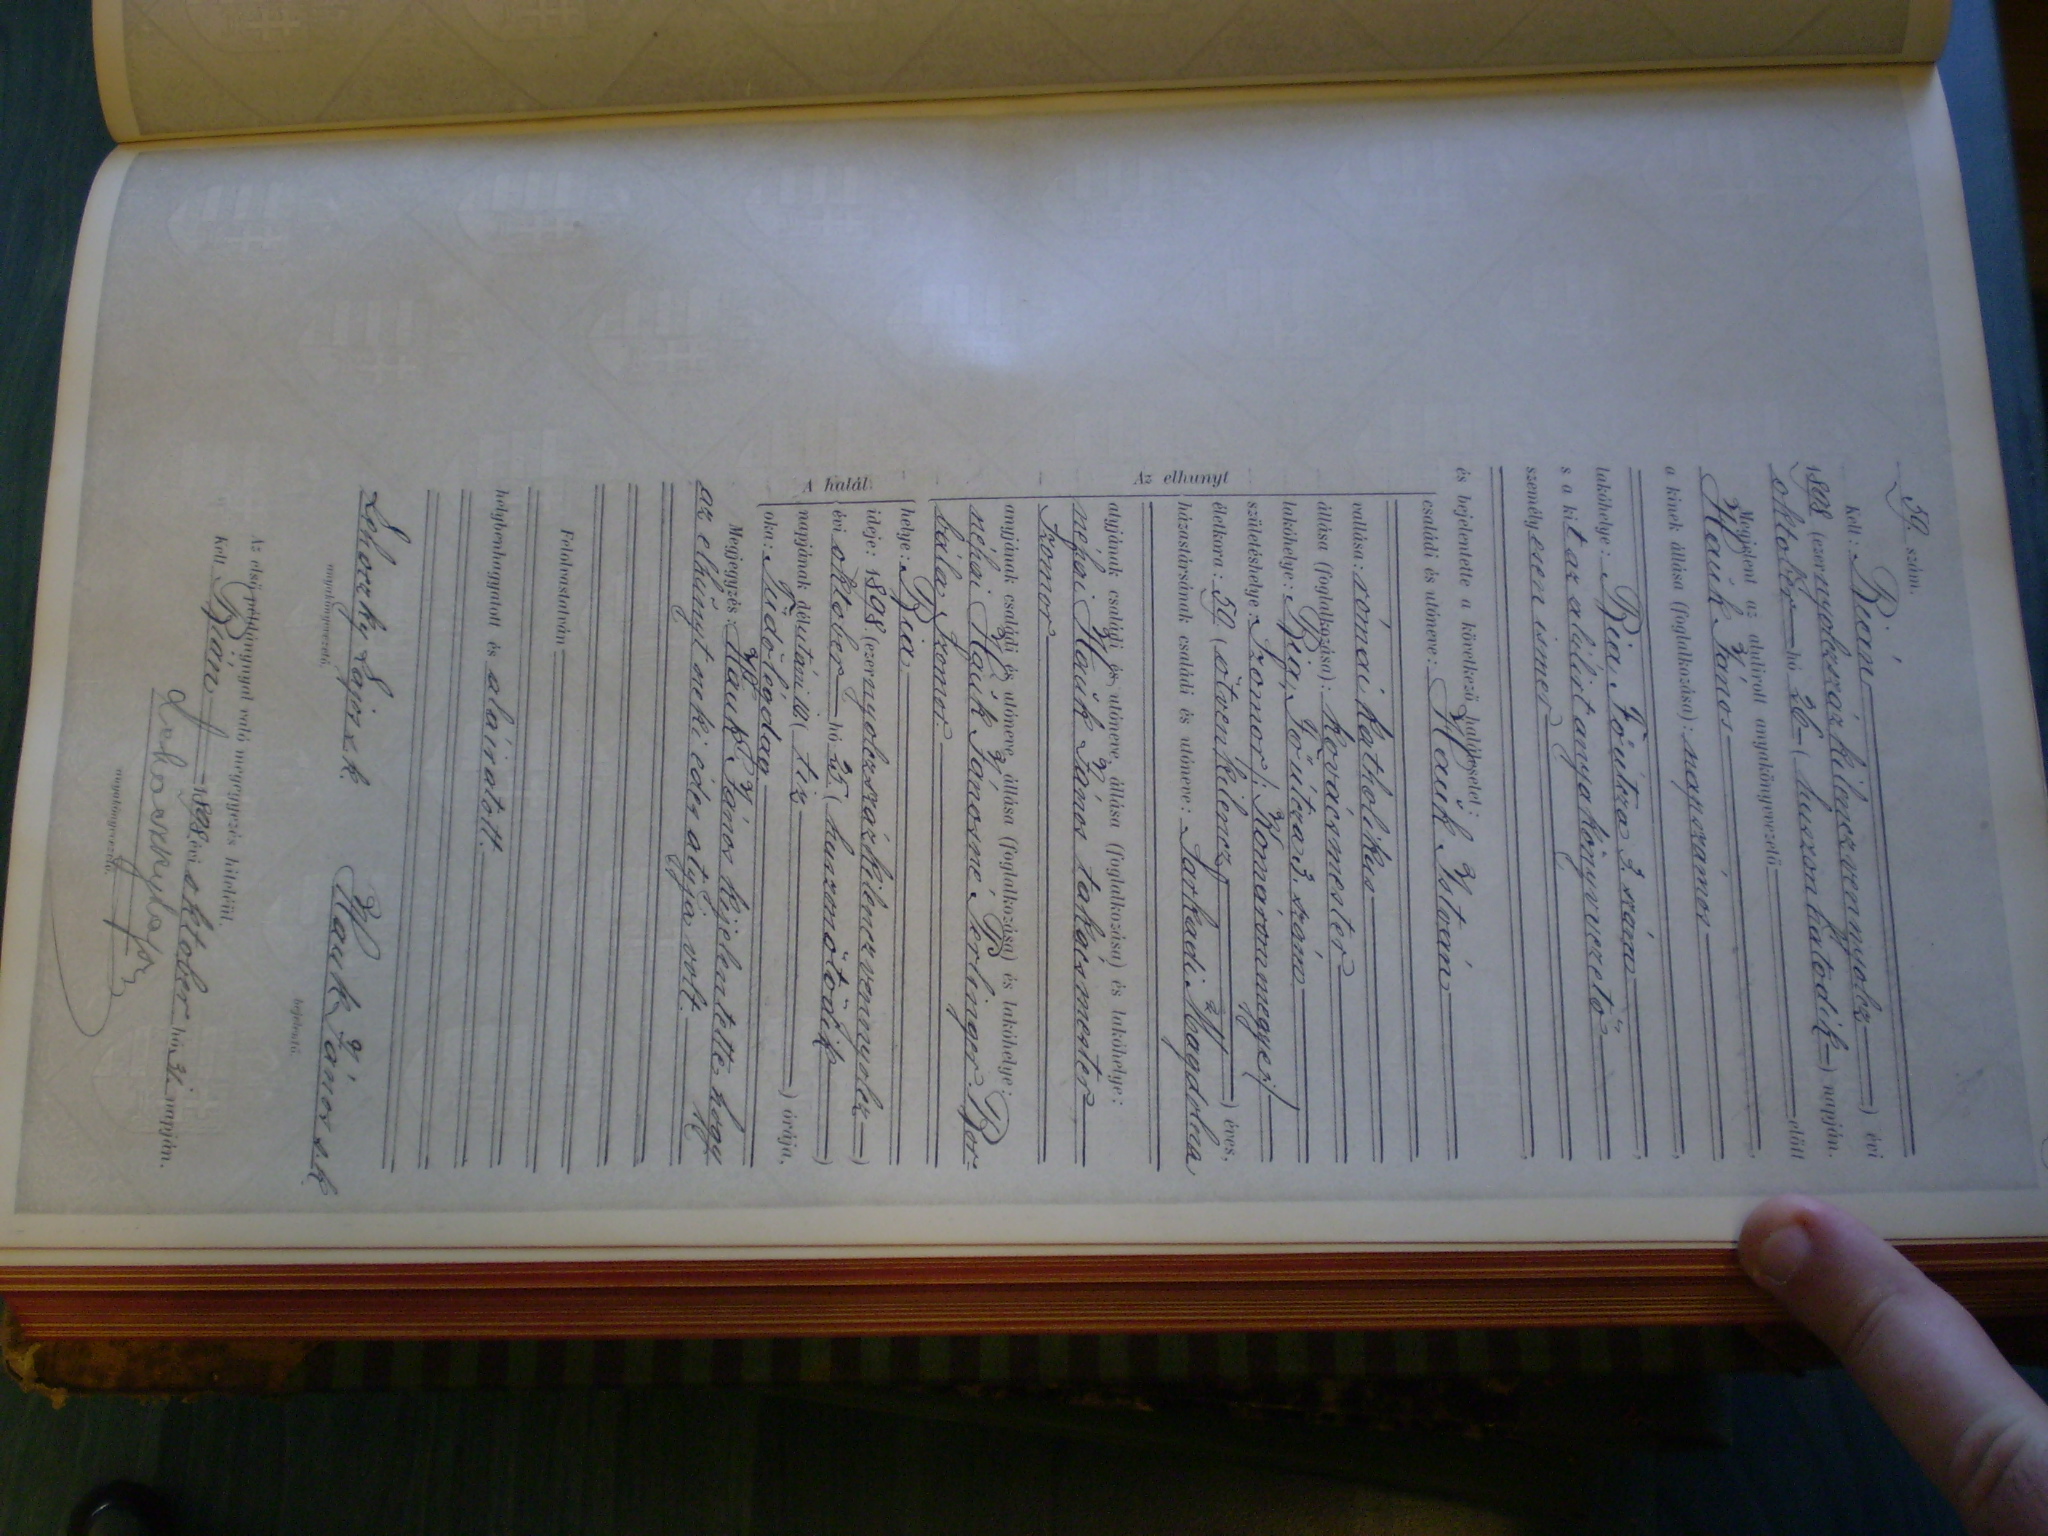 59. szám.
Kelt: Bián
1898 (ezernyolczszázkilenczvennyolcz) évi
október hó 26 (huszonhatodik) napján.
Megjelent az alulirott anyakönyvvezető előtt
Hauk János,
a kinek állása (foglalkozása): napszámos,
lakóhelye: Bia, Főútcza 3. szám,
s a kit az alólirt anyakönyvvezető
személyesen ismer,
és bejelentette a következő halálesetet:
Az elhunyt
családi és utóneve: Hauk István
vallása: római katholikus
állása (foglalkozása): kovácsmester
lakóhelye: Bia, Főútcza 3. szám
születéshelye: Szomor /: Komárommegye :/
életkora: 59 (ötvenkilencz) éves,
házastársának családi és utóneve: Sarkadi Magdolna
atyjának családi és utóneve, állása (foglalkozása) és lakóhelye:
néhai Hauk János takácsmester,
Szomor
anyjának családi és utóneve, állása (foglalkozása) és lakóhelye:
néhai Hauk Jánosné Perlinger Bor-
bála, Szomor.
A halál
helye: Bia
ideje: 1898 (ezernyolczszázkilenczvennyolcz)
évi október hó 25 (huszonötödik)
napjának délutáni 10 (tiz) órája,
oka: Tüdőlegdag
Megjegyzés: Hauk János kijelentette hogy
az elhúnyt neki édes atyja volt.
Felolvastatván,
helybenhagyatott és aláiratott.
Lehoczky Lajos s. k.
anyakönyvvezető.
Hauk János s. k.
bejelentő.
Az első példánnyal való megegyezés hiteléül.
Kelt Bián 1898 évi október hó 31. napján.
Lehoczky Lajos
anyakönyvvezető.